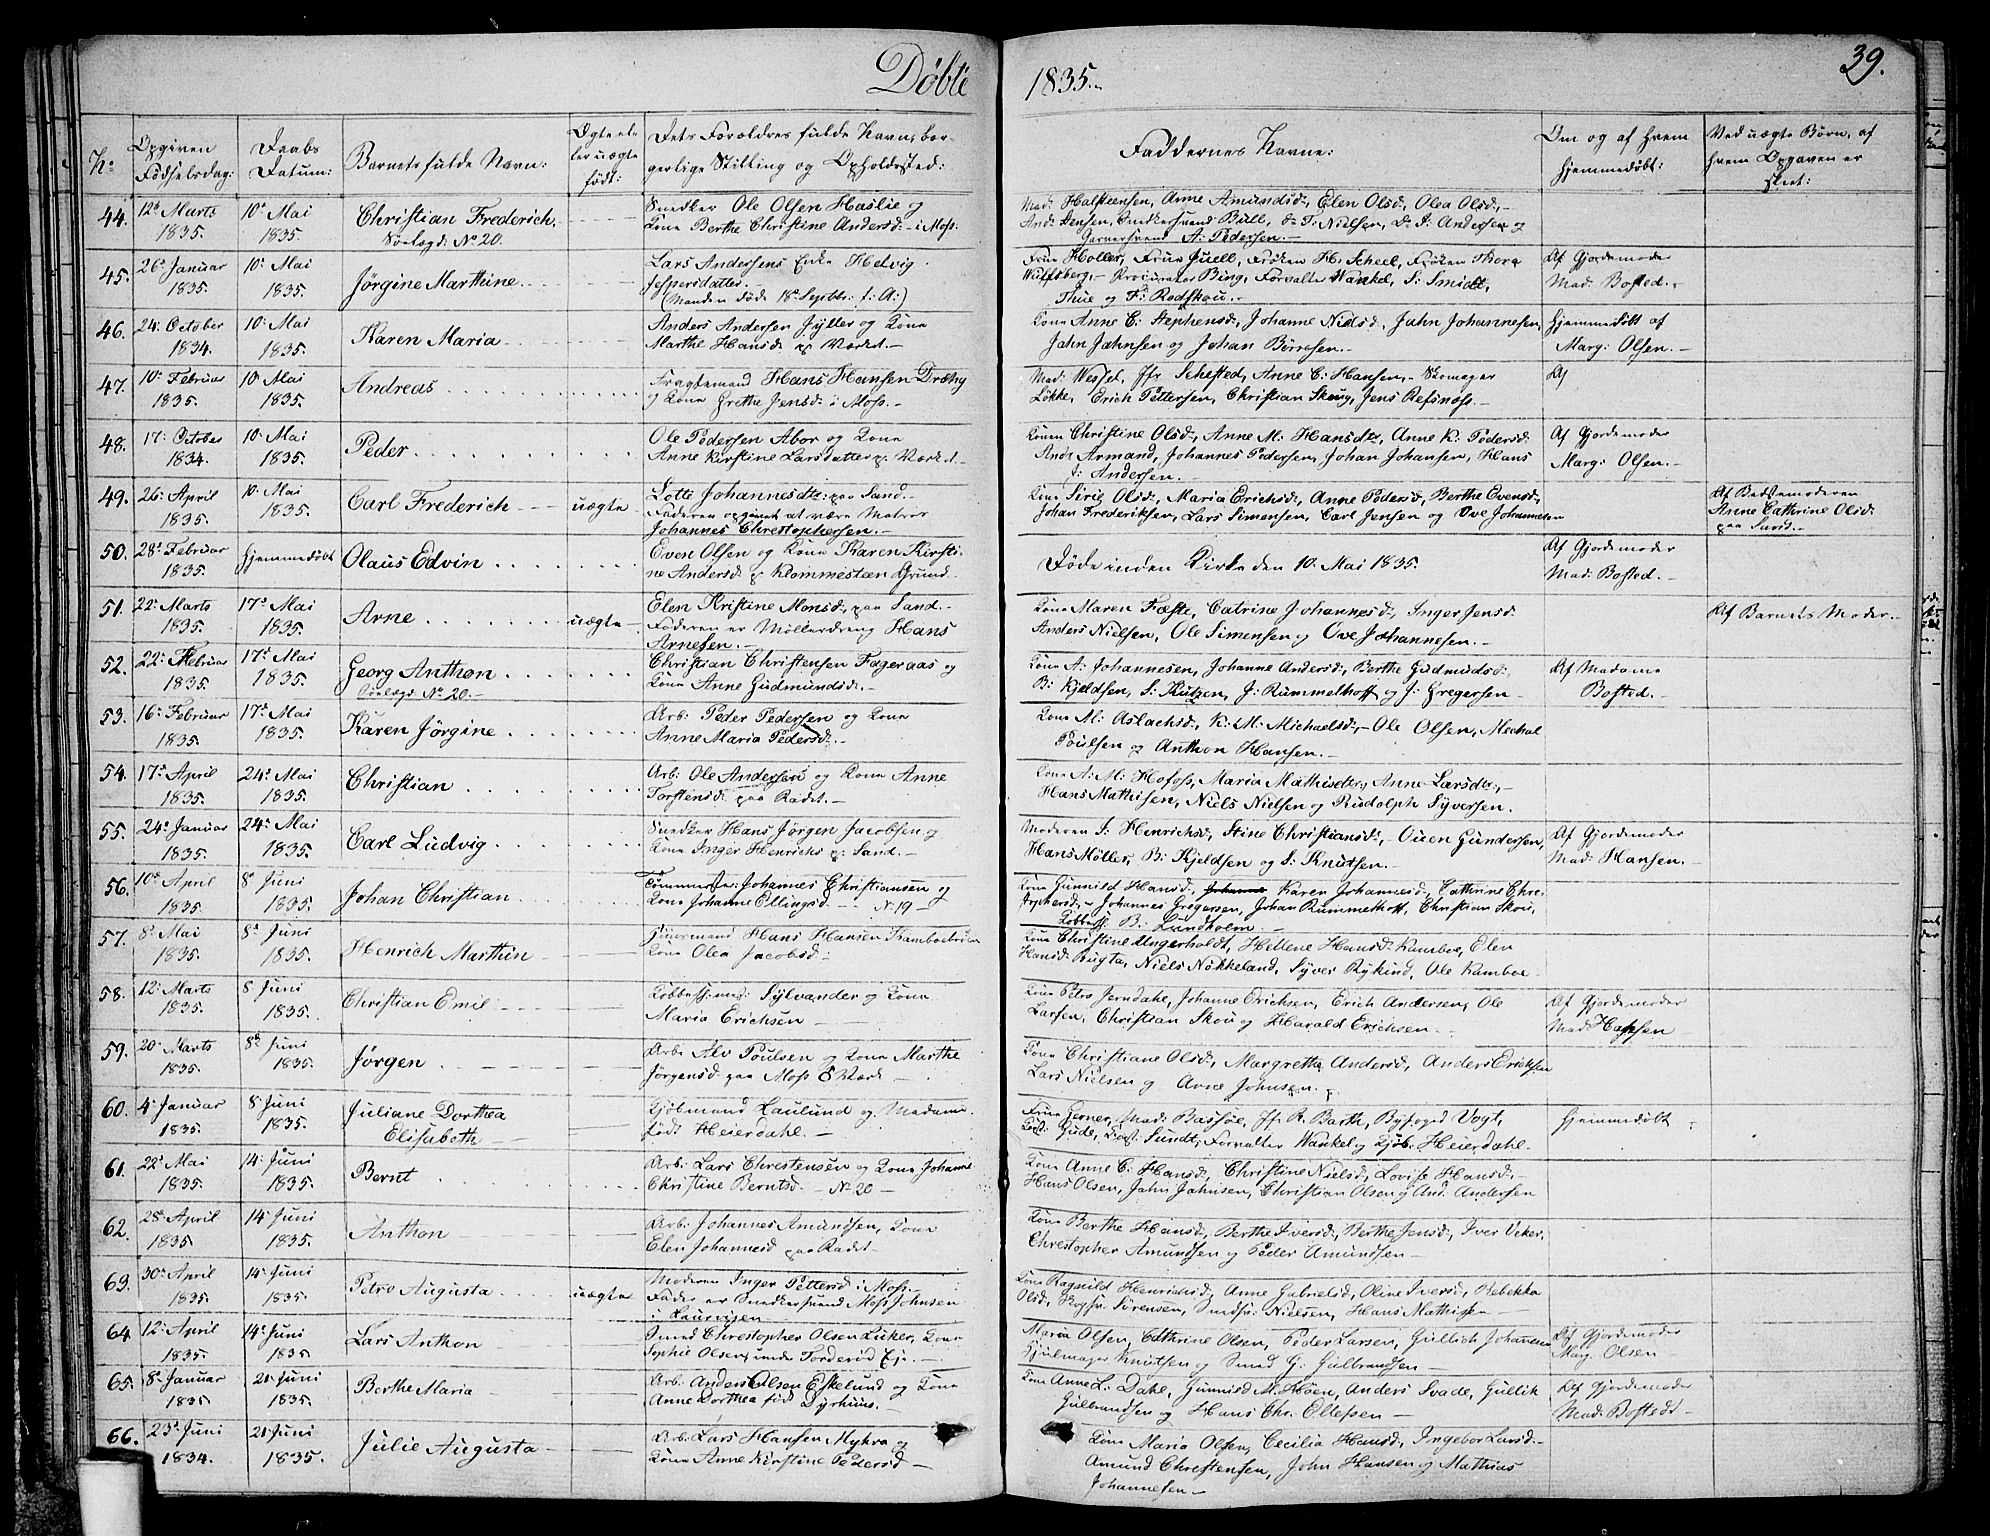 Døbte
1835.
39.
No
Opgiven
Fødselsdag:
Daabs
Datum:
Barnets fulde Navn:
Ægte el-
ler uægte
født:
Dets Forældres fulde Navn, bor-
gerlige Stilling og Opholdssted:
Faddernes Navne:
Om og af hvem
hjemmedøbt:
Ved uægte Børn, af
hvem Opgaven er
skeet:
44. 12te Marts 1835. 10de Mai 1835. Christian Frederich.
No 20.
Snedker Ole Olsen Haslie og
Kone Berthe Christine Andersd. i Moss.
Mad: Halsteensen, Anne Amundsd:, Elen Olsd, Olea Olsd,
And: Jensen, Snedkersvend Bull, Do T: Nielsen, Do J: Andersen og
Garversvend A: Pedersen.
45. 26de Januar 1835. 10de Mai 1835. Jørgine Marthine.
Lars Andersens Enke Helvig
Jespersdatter.
(Manden døde 18de Septbr: f: A:)
Frue Holler, Frue Juell, Frøken H: Scheel, Frøken Thora
Wulfsberg, Procurator Bing, Forvalter Wankel, S: Smidt,
Thue og F: Rodskou.
Af Gjordemoder
Mad: Bosted.
46. 24: October 1834. 10: Mai 1835. Karen Maria
Anders Andersen Jyller og Kone
Marthe Hansd: p: Værket.
Kone Anne C: Stephensd:, Johanne Nielsd:, Jahn Johannesen,
Jahn Jahnsen og Johan Børresen.
Hjemmedøbt af
Marg: Olsen.
47. 10: Februar 1835. 10: Mai 1835. Andreas
Fragtemand Hans Hansen Dræby
og Kone Grethe Jensd: i Moss.
Mad: Wessel, Jfr Sehested, Anne C: Hansen, Skomager
Løkke, Erich Pettersen, Christian Skoug, Jens Refsnæss.
Af
48. 17: October 1834. 10: Mai 1835. Peder
Ole Pedersen Abor og Kone
Anne Kirstine Larsdatter p: Værket.
Konen Christine Olsd:, Anne M: Hansdtr, Anne K: Pedersd:
Andr Armand, Johannes Pedersen, Johan Johansen, Hans
J: Andersen.
Af Gjordemoder
Marg: Olsen.
49. 26: April 1835. 10: Mai 1835. Carl Frederich uægte
Lotte Johannesdtr: paa Sand.
Faderen opgivet at være Matros
Johannes Chrestophersen.
Kone Sirie Olsd:, Maria Erichsd:, Anne Pedersd, Berthe Evensd,
Johan Frederiksen, Lars Simensen, Carl Jensen og Ove Johannesen
Af Bedstemoderen
Anne Cathrine Olsd:
paa Sand.
50. 28de Februar 1835. hjemmedøbt Olaus Edvin
Even Olsen og Kone Karen Kirsti-
ne Andersd: p: Klommesteen Grund.
Døde inden Kirke den 10. Mai 1835.
Af Gjordemoder
Mad: Bosted.
51. 22: Marts 1835. 17de Mai 1835. Arne uægte
Elen Kristine Monsd:, paa Sand.
Faderen er Møllerdreng Hans
Arnesen.
Kone Maren Fæste, Catrine Johannesd:, Inger Jensd:
Anders Nielsen, Ole Simensen og Ove Johannesen.
Af Barnets Moder.
52. 22: Februar 1835. 17de Mai 1835. Georg Anthon
No 20.
Christian Christensen Fageraas og
Kone Anne Gudmundsd:
Kone A: Johannesen, Johanne Andersd:, Berthe Gudmudsd:
B: Kjeldsen, S: Kutzen, J: Rummelhoff og J: Gregersen
Af Madame
Bosted.
53. 16: Februar 1835. 17de Mai 1835. Karen Jørgine
Arb: Peder Pedersen og Kone
Anne Maria Pedersd:
Kone M: Aslachsd:, K: M: Michaelsd:, Ole Olsen, Mechal
Poulsen og Anthon Hansen.
54. 17de April 1835. 24de Mai 1835. Christian
Arb: Ole Andersen og Kone Anne
Torstensd: paa Radet.
Kone A: M: Hofoss, Maria Mathisdtr, Anne Larsdtr,
Hans Mathisen, Niels Nielsen og Rudolph Syversen.
55. 24de Januar 1835. 24de Mai 1835. Carl Ludvig
Snedker Hans Jørgen Jacobsen og
Kone Inger Henrichs p: Sand.
Moderen S: Henrichsd:, Stine Christiansd:, Ouen Gundersen,
Hans Møller, B: Kjeldsen og S: Knutsen.
Af Gjordemoder
Mad: Hansen.
56. 10de April 1835. 8de Juni 1835. Johan Christian
Tømmermester: Johannes Christiansen og
Kone Johanne Ellingsd: No 19
Kone Gunnild Hansd:, Karen Johannesd:, Cathrine Chre-
stophersd:, Johannes Gregersen, Johan Rummelhoff, Christian Skou,
Kobbesl: B: Lundholm.
57. 8de Mai 1835. 8de Juni 1835. Henrich Marthin
Huusmand Hans Hansen Kamboebraaten
Kone Olea Jacobsd:
Kone Christine Ungerholdt, Hellene Hansd: Kamboe, Elen
Hansd: Rugta, Niels Nøkkeland, Syver Rykind, Ole Kamboe
58. 12: Marts 1835. 8 Juni 1835. Christian Emil
Kobbersmed: Sylvander og Kone
Maria Erichsen
Kone Petro Jerndahl, Johanne Erichsen, Erich Andersen, Ole
Larsen, Christian Skou og Harald Erichsen.
Af Gjordemoder
Mad: Hansen
59. 20: Marts 1835. 8de Juni 1835. Jørgen
Arb: Alv Poulsen og Kone Marthe
Jørgensd: paa Moss Værk
Kone Christiane Olsd:, Margrethe Andersd, Anders Ericksen
Lars Nielsen og Arne Johnsen.
60. 4: Januar 1835. 8de Juni 1835. Juliane Dorthea
Elisabeth
Kjøbmand Laulund og Madame
født Heierdahl.
Frue Gerner, Mad: Bassøe, Jfr R. Barth, Byfoged Vogt,
Gude, Sundt, Forvalter Wankel og Kjøb: Heierdahl.
Hjemmedøbt
61. 22: Mai 1835. 14: Juni 1835. Bernt
Arb: Lars Chrestensen og Kone Johanne
Christine Berntsd: No 20
Kone Anne C: Hansd:, Christine Nielsd:, Lovise Hansd:
Hans Olsen, Jahn Jahnsen, Christian Olsen og And: Andersen
62. 28de April 1835. 14: Juni 1835. Anthon
Arb: Johannes Amundsen, Kone
Elen Johannesd paa Radet
Kone Berthe Hansd:, Berthe Iversd:, Berthe Jensd:, Iver Veker,
Chrestopher Amundsen og Peder Amundsen
63. 30te April 1835. 14: Juni 1835. Petro Augusta uægte
Moderen Inger Pettersd: i Moss.
Fader er Snedkersvend Moss Johnsen
i Laurvigen
Kone Ragnild Henrichsd:, Anne Gabrielsd, Oline Iversd:, Rebekka
Olsd, Sørensen, Smedsv: Nielsen, Hans Mathisen
64. 12: April 1835. 14de Juni 1835 Lars Anthon
Smed Chrestopher Olsen Lucker, Kone
Sophie Olsen, under Torderød Eje.
Maria Olsen, Cathrine Olsen, Peder Larsen, Gullich Johannesen
Hjulmager Knutsen og Smed G: Gulbrandsen
Af Gjordemoder
Marg. Olsen
65. 8de Januar 1835 21 Juni 1835. Berthe Maria
Arb: Anders Olsen Eskelund og Kone
Anne Dorthea fød Dyrhuus.
Kone Anne L: Dahl, Gunnild M: Høen, Anders Svade, Gullik
Gulbrandsen og Hans Chr. Ellefsen
Af Gjordemoder
Mad: Bostedt
66. 23de Juni 1834. 21 Juni 1835. Julie Augusta
Arb: Lars Hansen Myhra og
Kone Anne Kirstine Pedersd
Kone Maria Olsen, Cecilia Hansd:, Ingebor Larsd:
Amund Chrestensen, John Hansen og Mathias
Johannesen